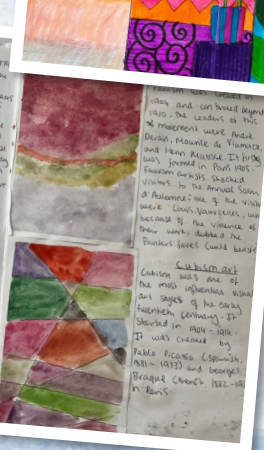 Fauvism was created in
1900s and continued beyond
1910. The leaders of this
movement were André
Derain, Maurice de Vlaminck,
and Henri Matisse. It first
was formed in Paris 1905.
Fauvism artists shocked
visitors to the Annual Salon
d'Automne; one of the visitors
were Louis Vauxcelles, who
because of the violence of
their work, dubbed the
Painters faves (wild beasts
Cubism art
Cubism was one of
the most influential visual
art stages of the early
twentieth century. It
started in 1904-1914.
It was created by
Pablo Picasso (Spanish,
1881-1973) and Georges
Braque (French 1882-19
n Paris.